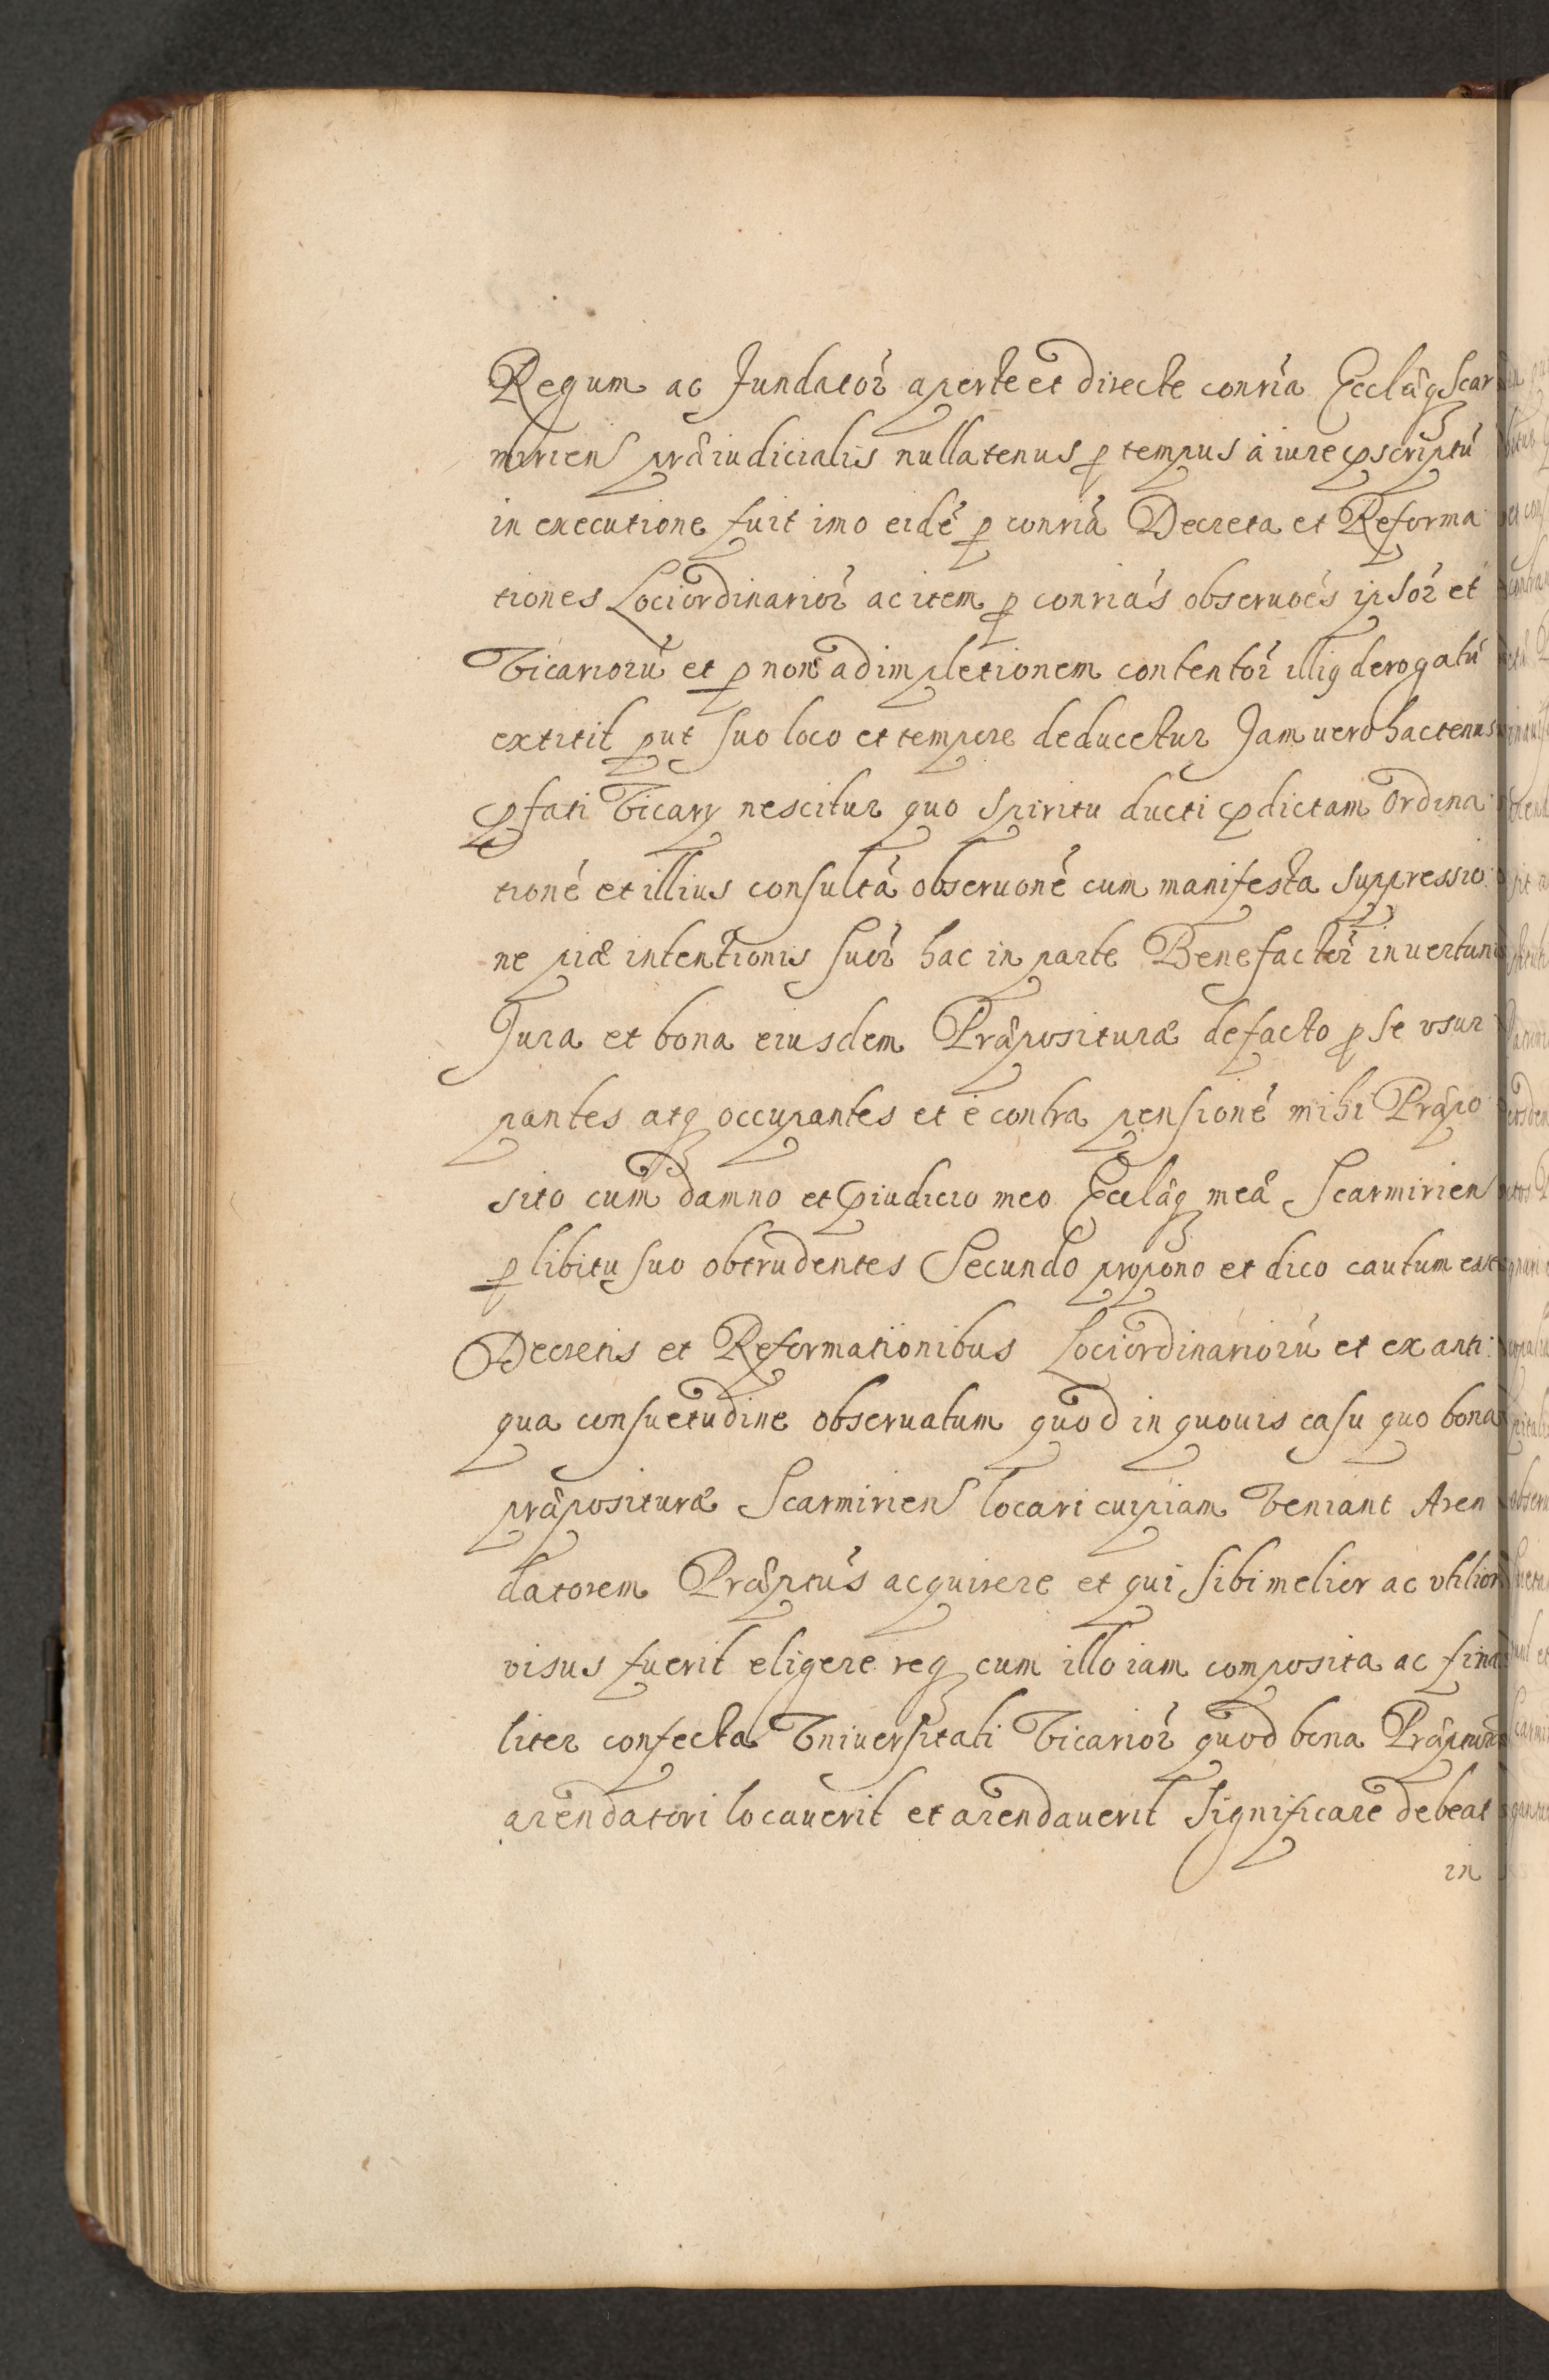 Regum ac Fundatoꝝ aperte et directe conria Eccłæq́ Scar
mirien præiudicialis nullatenus ꝑ tempus à iure ꝓscriptū
in executione fuit imo eidē ꝑ conria Decreta et Reforma
tiones Lociordinarioꝝ ac item ꝑ conrias obseruoēs ipsoꝝ et
Vicarioru et ꝑ non adimpletionem contentoꝝ illiq derogatū
extitit ꝓut suo loco et tempore deducetur Jam uero hactenus
ꝓfati Vicarÿ nescitur quo Spiritu ducti ꝓdictam Ordina
tionē et illius consultā obseruonē cum manifesta suppressio
ne piæ intentionis suoꝝ hac in parte Benefactoꝝ inuertunt
Jura et bona eiusdem Præposituræ defacto ꝓ se vsur
pantes atq́ occupantes et è contra pensionē mihi Præpo
sito cum damno et ꝓiudicio meo Eccłæq́ meæ Scarmirien
ꝑ libitu suo obtrudentes Secundo propono et dico cautum
Decretis et Reformationibus Lociordinarioru et ex anti:
qua consuetudine obseruatum quod in quouis casu quo bona
præposituræ Scarmirien locari cuipiam Veniant Aren
datorem Præptus acquirere et qui sibi melior ac vtilior
visus fuerit eligere req́ cum illo iam composita ac fina
liter confecta Vniuersitati Vicarioꝝ quod bona Præpturæ
arendatori locauerit et arendauerit significare debeat
in